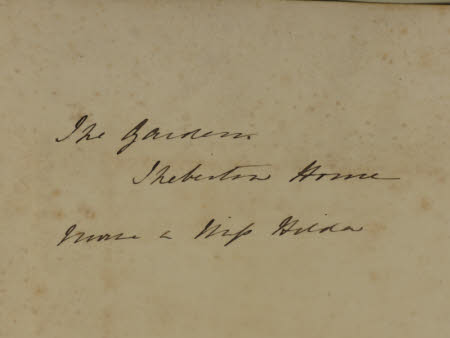 The Gardens
Theberton House
Nurse & Miss Hilda